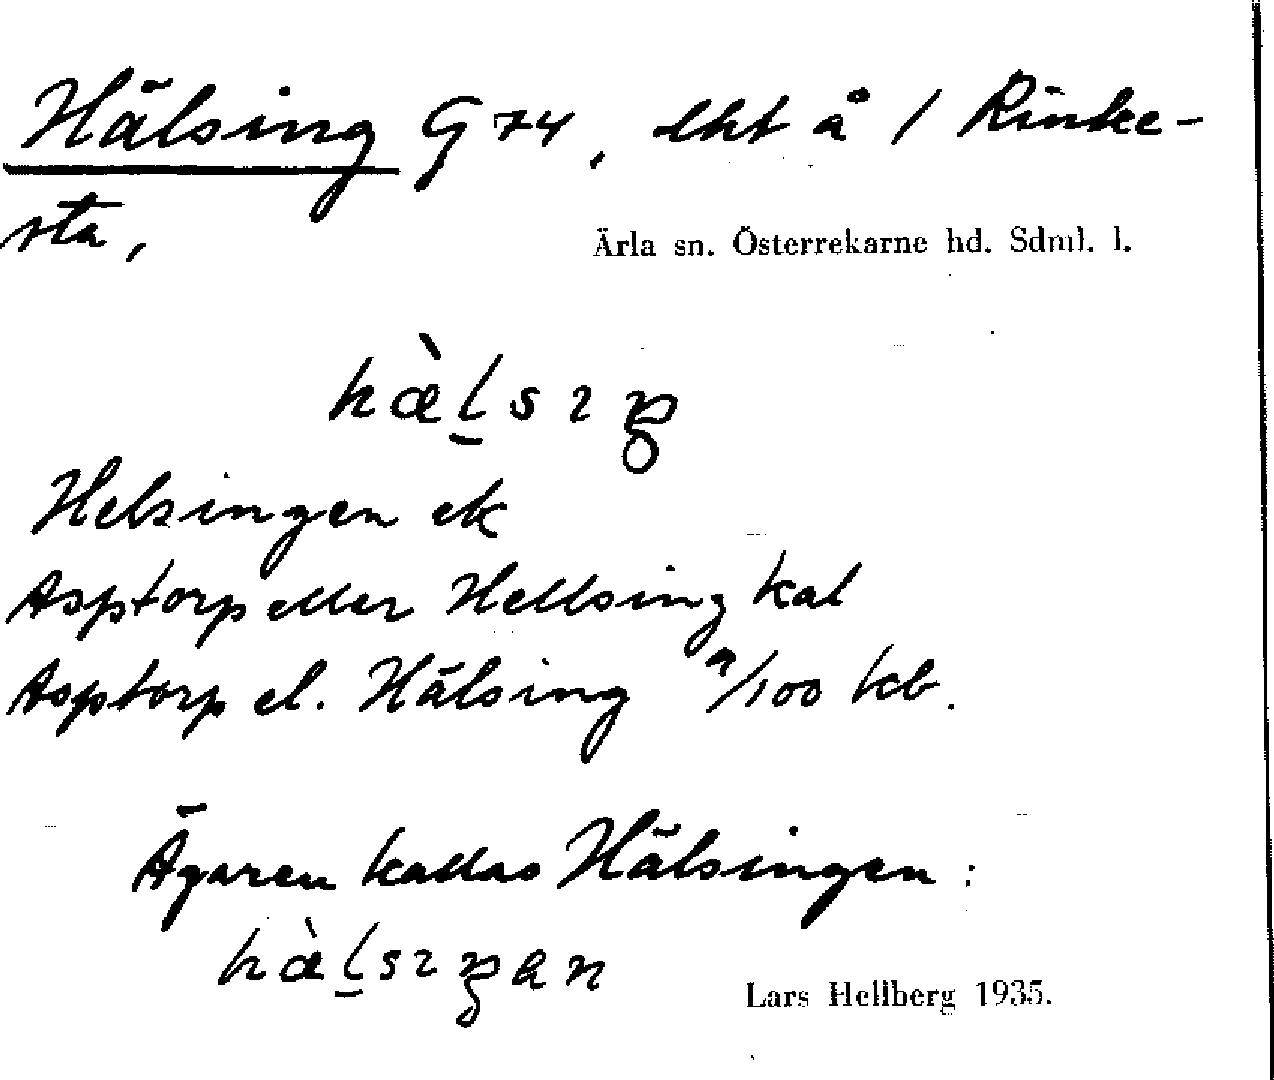 Hälsing G 74, lht å 1 Rinke-
sta,
Ärla sn. Österrekarne hd. Sdml. l.
hæ̀l̠sɪŋ
Helsingen ek
Asptorp eller Hellsing kal
Asptorp el. Hälsing a/100 kb.
Ägaren kallas Hälsingen:
hæ̀l̠sɪŋən
Lars Hellberg 1935.